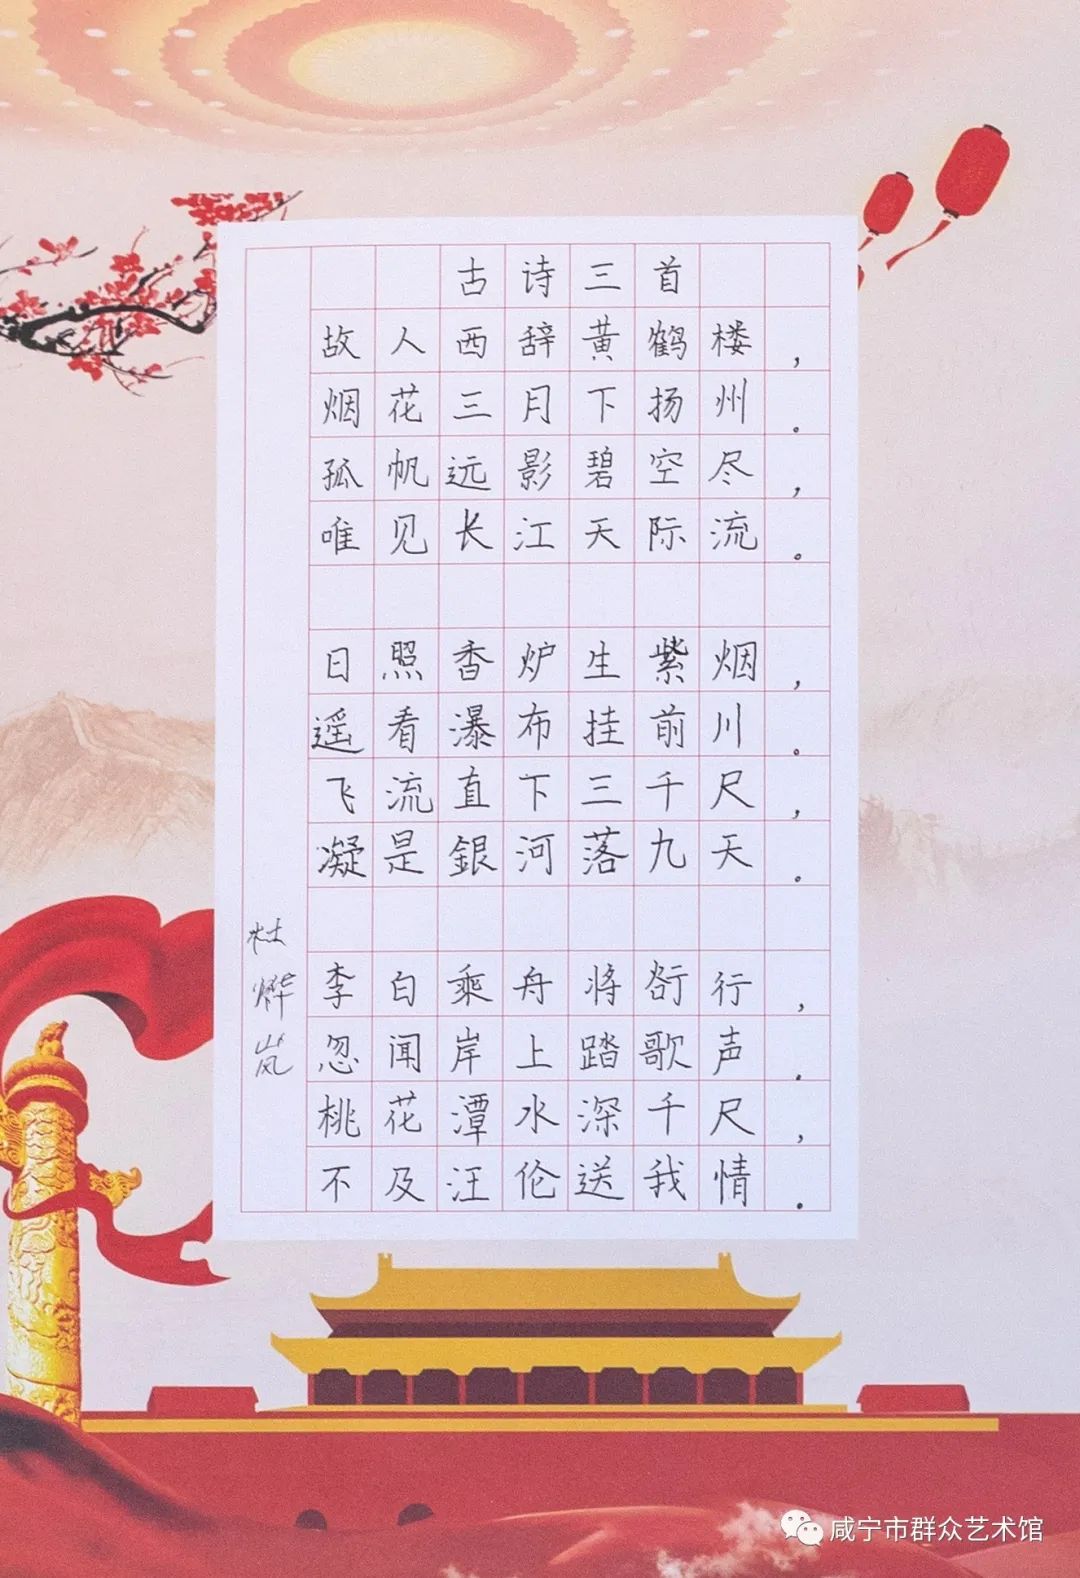 古诗三首
故人西辞黄鹤楼，
烟花三月下扬州。
孤帆远影碧空尽，
唯见长江天际流。
日照香炉生紫烟，
遥看瀑布挂前川。
飞流直下三千尺，
凝是銀河落九天。
李白乘舟将行，
忽闻岸上踏歌声。
桃花潭水深千尺，
不及汪伦送我情。
杜烨岚
咸宁市群众艺术馆